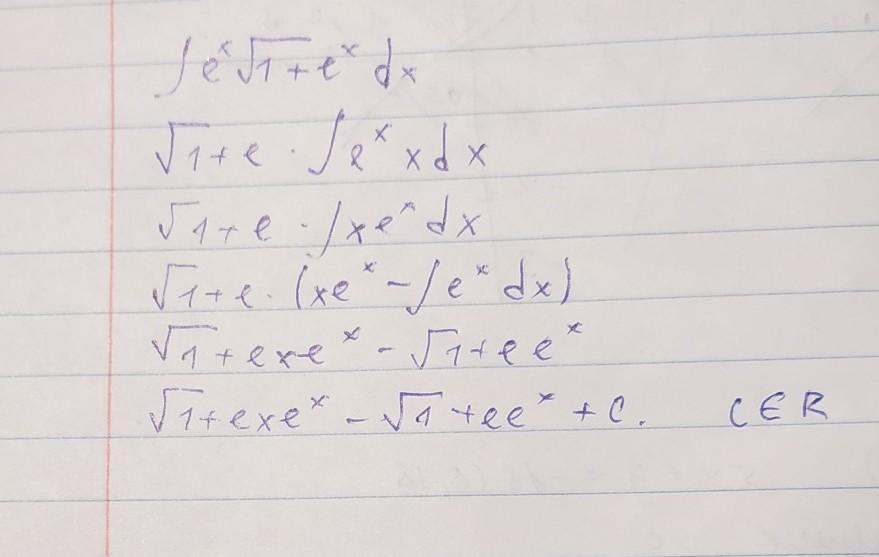 ∫e^x √1+e^x dx
√1+e · ∫e^x x dx
√1+e · ∫xe^x dx
√1+e · (xe^x − ∫e^x dx)
√1+exe^x − √1+ee^x
√1+exe^x − √1+ee^x + C. C∈R